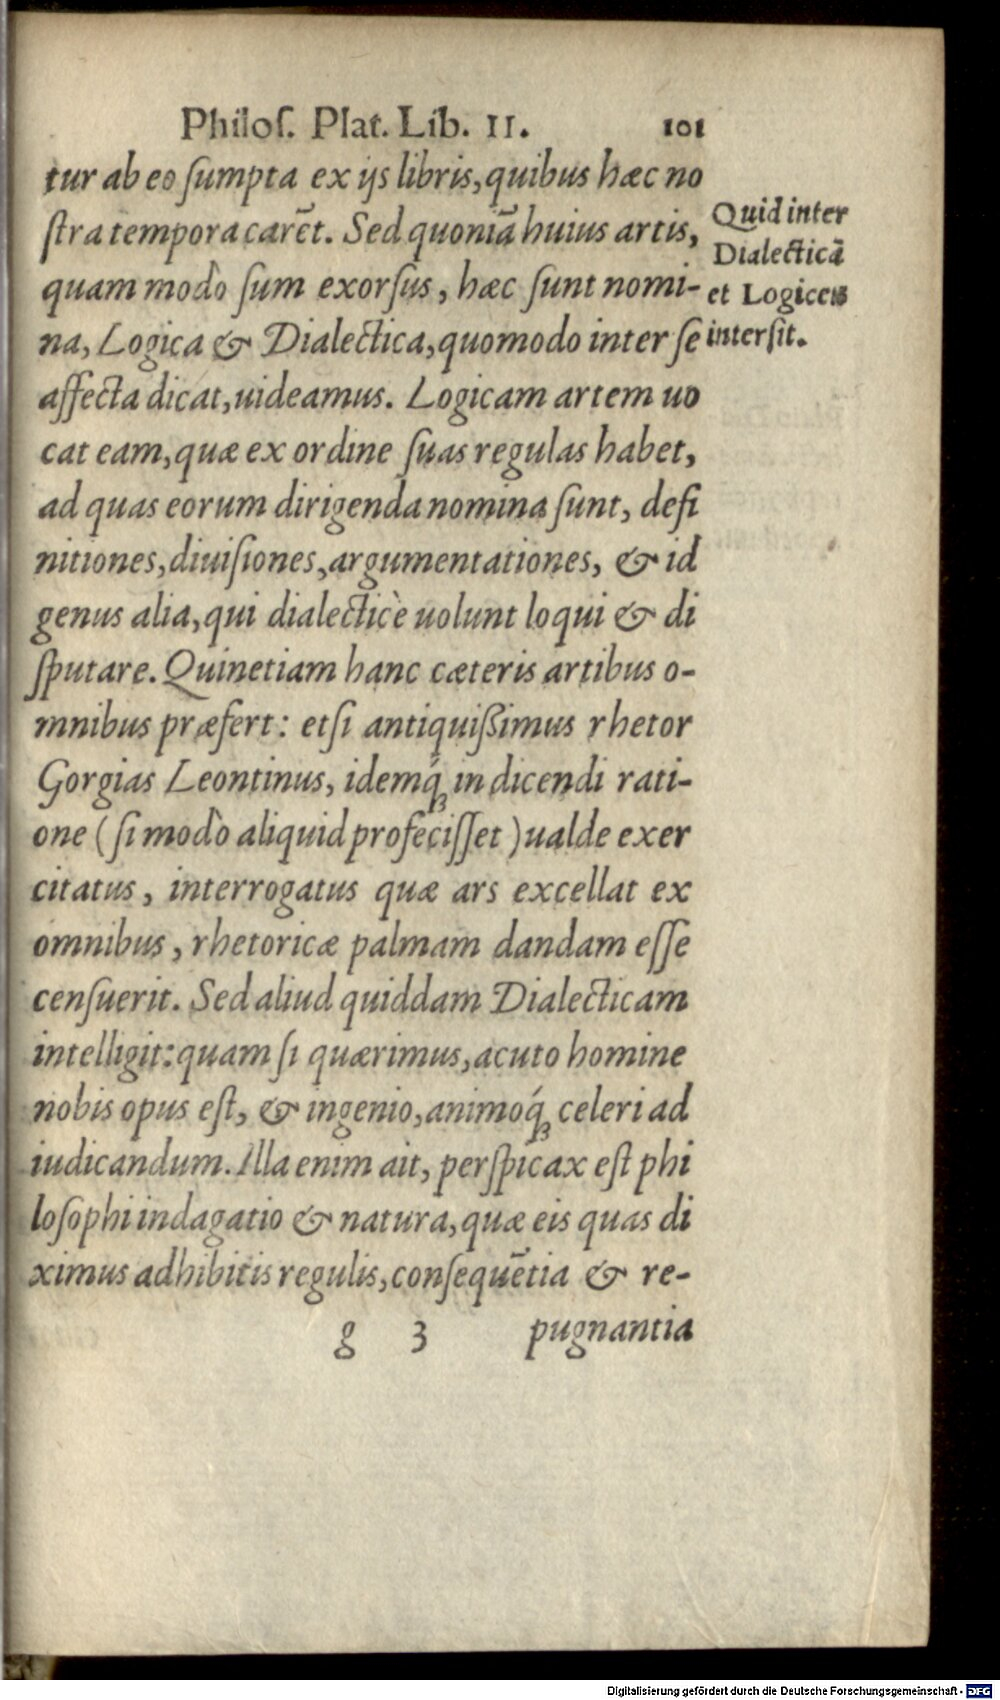 Philos. Plat. Lib. II. 101
tur ab eo sumpta ex ijs libris, quibus hæc no
stra tempora carēt. Sed quoniā huius artis,
quam modò sum exorsus, hæc sunt nomi-
na, Logica & Dialectica, quomodo inter se
affecta dicat, uideamus. Logicam artem uo
cat eam, quæ ex ordine suas regulas habet,
ad quas eorum dirigenda nomina sunt, defi
nitiones, diuisiones, argumentationes, & id
genus alia, qui dialecticè uolunt loqui & di
sputare. Quinetiam hanc cæteris artibus o-
mnibus præfert: etsi antiquißimus rhetor
Gorgias Leontinus, idemq́; in dicendi rati-
one (si modò aliquid profecisset) ualde exer
citatus, interrogatus quæ ars excellat ex
omnibus, rhetoricæ palmam dandam esse
censuerit. Sed aliud quiddam Dialecticam
intelligit: quam si quærimus, acuto homine
nobis opus est, & ingenio, animoq́; celeri ad
iudicandum. Illa enim ait, perspicax est phi
losophi indagatio & natura, quæ eis quas di
ximus adhibitis regulis, consequētia & re-
g 3 pugnantia
Quid inter
Dialecticā
et Logicen
intersit.
Digitalisierung gefördert durch die Deutsche Forschungsgemeinschaft - DFG